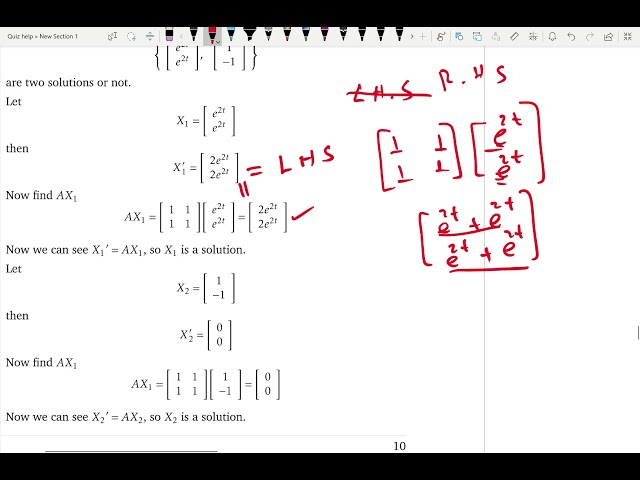 Quiz help » New Section 1
{ [ e^{2t} e^{2t} ], [ 1 -1 ] }
are two solutions or not.
Let
X₁ = [ e^{2t} e^{2t} ]
then
X₁′ = [ 2e^{2t} 2e^{2t} ] = LHS
Now find AX₁
AX₁ = [ 1 1 1 1 ] [ e^{2t} e^{2t} ] = [ 2e^{2t} 2e^{2t} ] ✓
Now we can see X₁′ = AX₁, so X₁ is a solution.
Let
X₂ = [ 1 -1 ]
then
X₂′ = [ 0 0 ]
Now find AX₁
AX₁ = [ 1 1 1 1 ] [ 1 -1 ] = [ 0 0 ]
Now we can see X₂′ = AX₂, so X₂ is a solution.
10
L.H.S R.H S
[ 1 1 1 1 ] [ e^{2t} e^{2t} ]
[ e^{2t} + e^{2t}
e^{2t} + e^{2t} ]